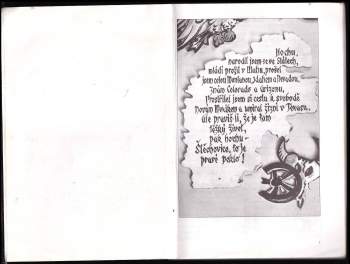 Hochu,
narodil jsem se ve Státech,
mládí prožil v Utahu, prošel
jsem celou Montanou, Idahem a Nevadou.
Znám Colorado a Arizonu,
Prostřílel jsem si cestu k svobodě
Novým Mexikem a umíral žízní v Texasu.
Ale pravím ti, že je tam
těžký život,
pak hochu -
Štěchovice, to je
pravé peklo!